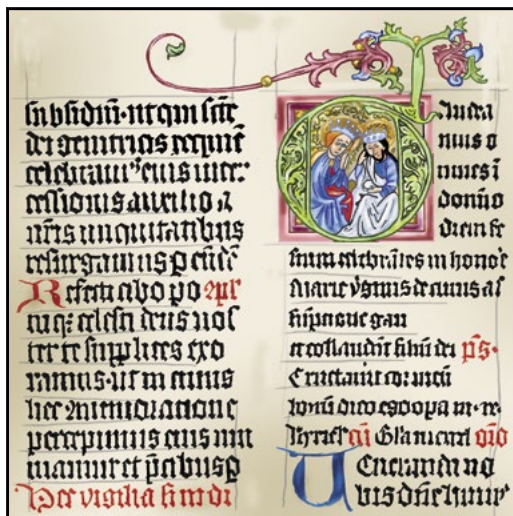 subsidiū· ut qui scē
dei genitricis requiē
celebram⁹ eius inter
cessionis auxilio a
nr̄is iniquitatibus
resurgamus p eūdē
Refecti cibo po
tuq; celesti deus nos
ter te supplices exo
ramus· ut in cuius
hec
percepimus eius mu
niamur et p̄cibus p
vigilia
Gaudea
mus o
mnes ī
domīo
diem fe
stum celebrātes in honoē
Marie de cuius as
gau
et collaudāt filiū dei p̄s·
Eructauit cor meū
bonū dico ego opa m· re·
cū orō
Ueneranda no
bis dn̄e huius